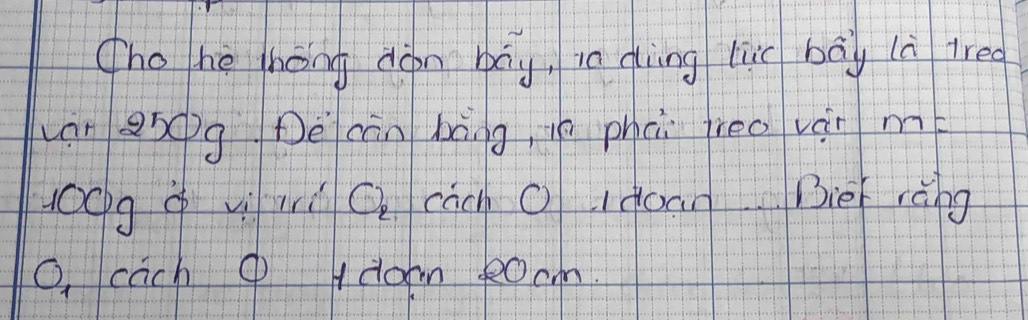 Cho hệ thống đòn bẩy, ta dùng lực bẩy là treo
vật 250g. Để cân bằng, ta phải treo vật m =
100g ở vị trí O₂ cách O 1 đoạn ... Biết rằng
O₁ cách O 1 đoạn 20cm.